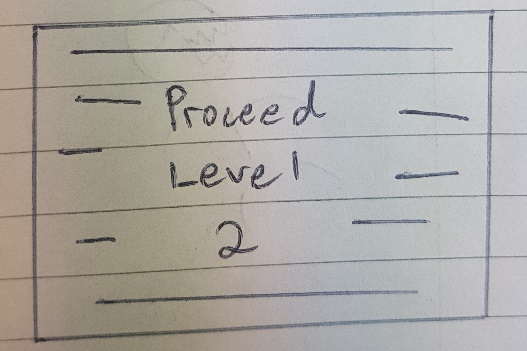 Proceed
Level
2